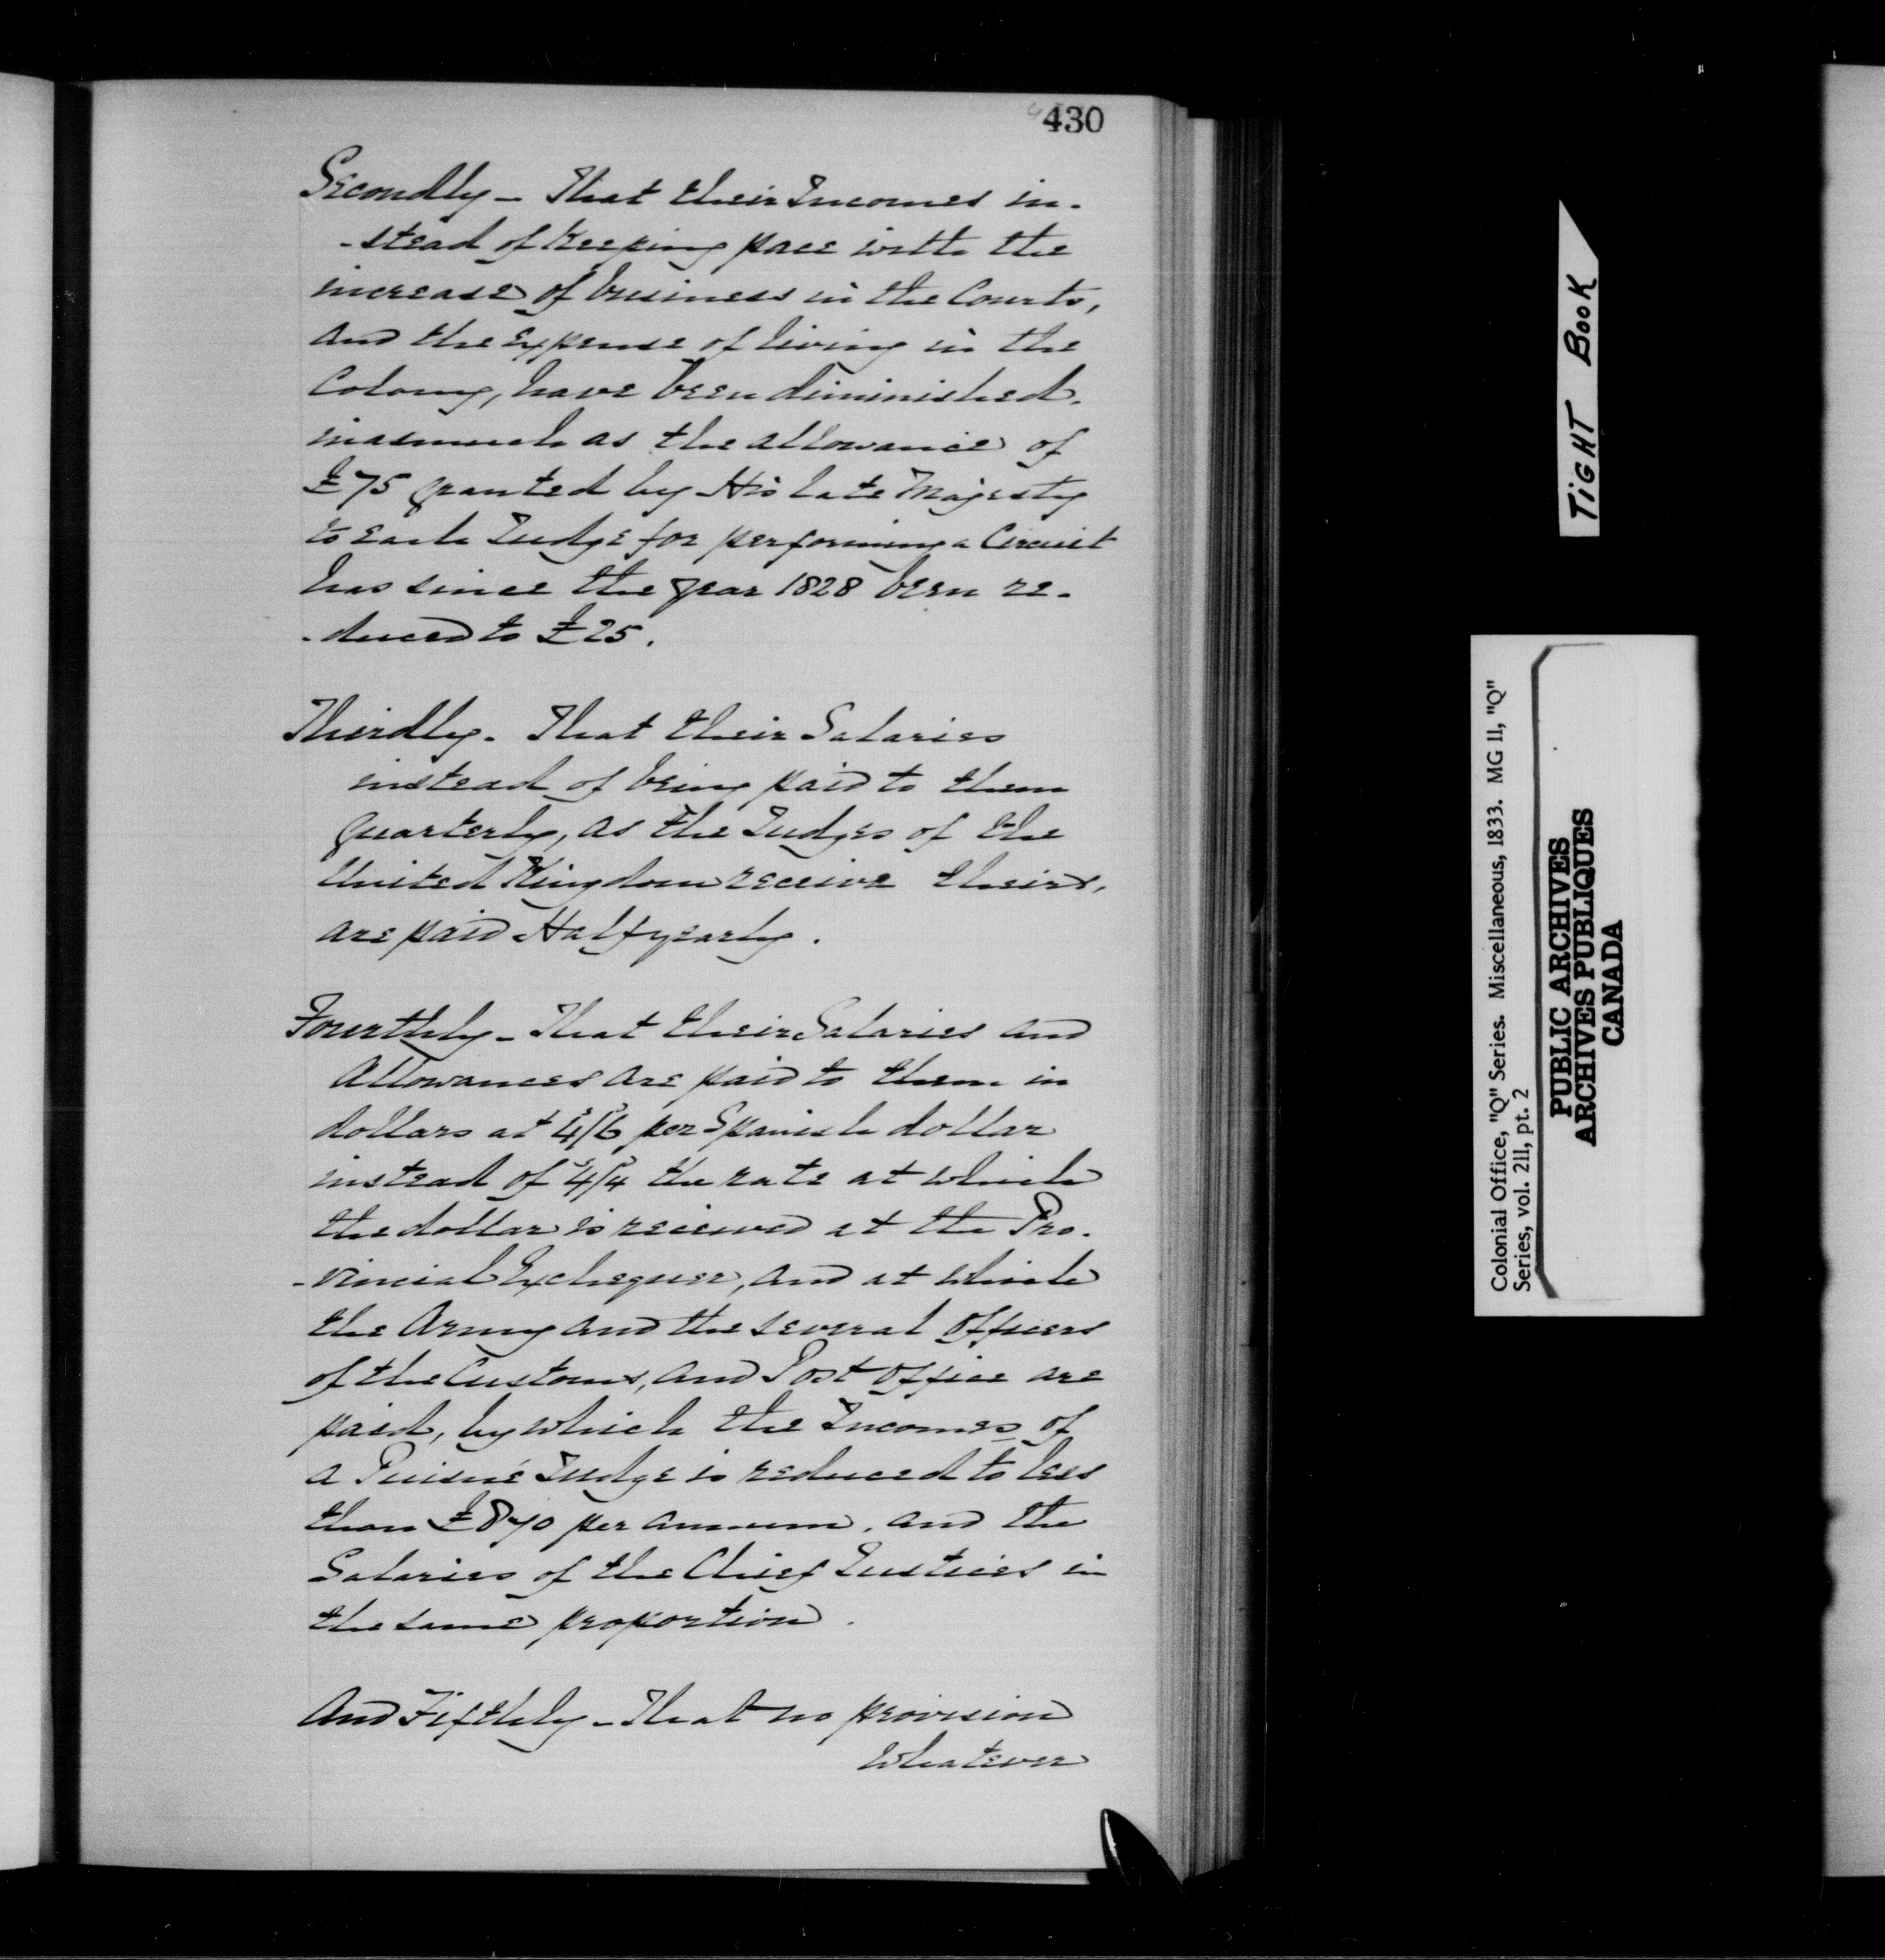 430
Secondly - That their Incomes in-
-stead of keeping pace with the
increase of business in the Courts,
and the Expense of living in the
Colony, have been diminished.
inasmuch as the allowance of
£75 granted by His late Majesty
to each Judge for performing a Circuit
has since the year 1828 been re-
-duced to £25.
Thirdly. That their Salaries
instead of being paid to them
quarterly, as the Judges of the
United Kingdom receive theirs,
are paid Half yearly.
Fourthly - That their Salaries and
Allowances are paid to them in
dollars at 4/6 per Spanish dollar
instead of 4/4 the rate at which
the dollar is received at the Pro-
-vincial Exchequer, and at which
the Army and the several officers
of the Customs, and Post office are
paid, by which the Incomes of
a Puisné Judge is reduced to less
than £870 per annum, and the
Salaries of the Chief Justices in
the same proportion.
And Fifthly - That no provision
Whatever
TIGHT BOOK
Colonial Office, "Q" Series. Miscellaneous, 1833. MG 11, "Q"
Series, vol. 211, pt. 2
PUBLIC ARCHIVES
ARCHIVES PUBLIQUES
CANADA